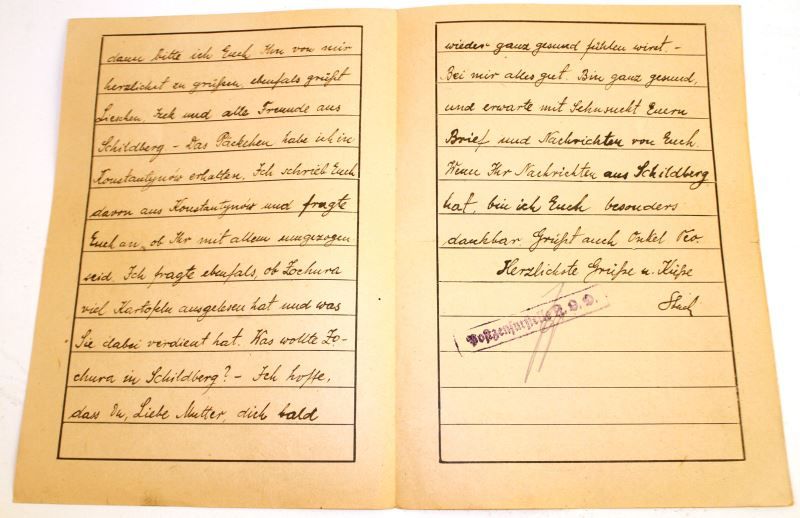 dann bitte ich Euch Ihn von mir
herzlichst zu grüßen, ebenfalls grüßt
Lieschen, und alle Freunde aus
Schildberg – Das Päckchen habe ich in
Konstantynów erhalten. Ich schrieb Euch
davon aus Konstantynów und fragte
Euch an, ob Ihr mit allem umgezogen
seid. Ich fragte ebenfalls, ob Zochura
viel Kartofeln ausgelesen hat und was
Sie dabei verdient hat. Was wollte Zo-
chura in Schildberg? – Ich hoffe,
dass Du, Liebe Mutter, dich bald
wieder ganz gesund fühlen wirst. –
Bei mir alles gut. Bin ganz gesund,
und erwarte mit Sehnsucht Euern
Brief und Nachrichten von Euch.
Wenn Ihr Nachrichten aus Schildberg
hat, bin ich Euch besonders
dankbar Grüßt auch Onkel Teo.
Herzlichste Grüße u. Küße
Postzensurstelle